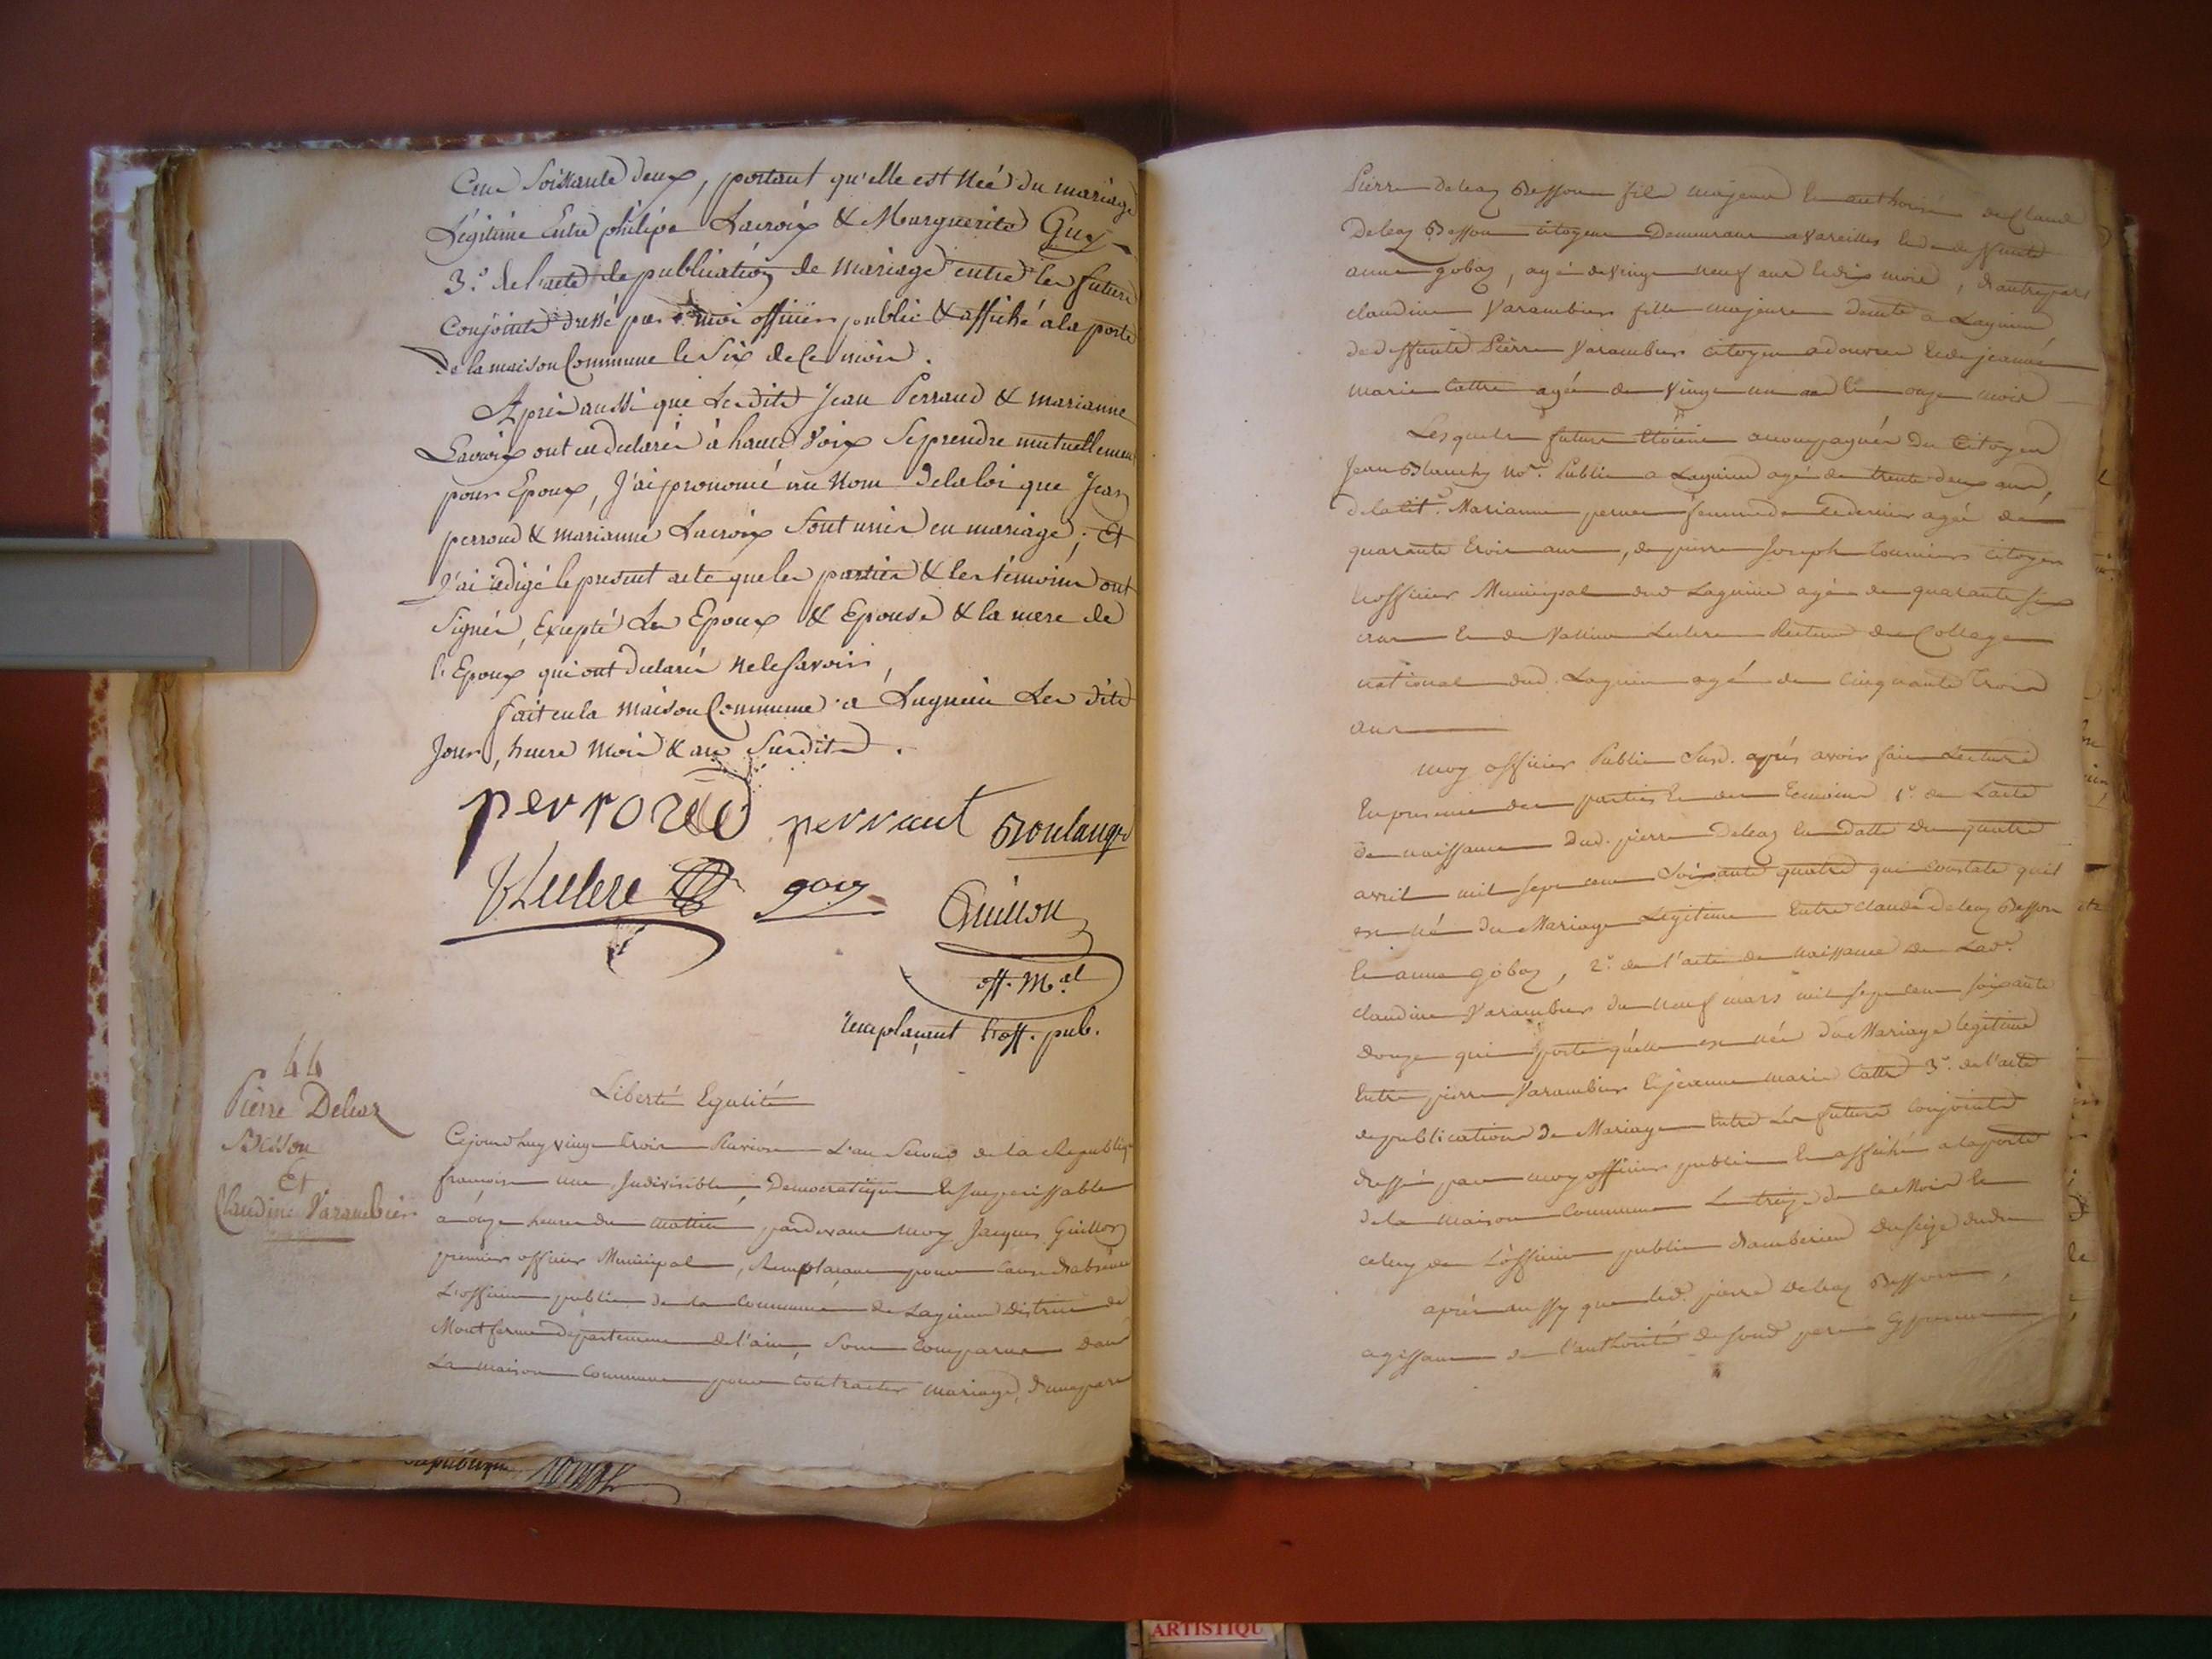 Cent Soixante deux, portant qu'elle est née du mariage
Légitime Entre philipe Lacroix & Marguerite Guy
3.º de l'acte de publication de mariage entre les futurs
Conjoints dressé par moi officier public & affiché a la porte
De la maison Commune le Six de Ce mois.
Après aussi que Lesdits Jean Perraud & marianne
Lacroix ont eu declarés à haute Voix Se prendre mutuellement
pour Epoux, J'ai prononcé au Nom de la loi que Jean
perroud & marianne Lacroix Sont unis en mariage; Et
J'ai rédigé le present acte que les parties & les témoins ont
Signés, Excepté Les Epoux & Epouse & la mere de
l'Epoux qui ont declarés ne le Savoir,
fait en la maison Commune a Lagnieu Les dits
Jour, heure mois & an Susdits.
perroud perraut Boulange
VLeclerc goy
Guillon
off. M.al
remplaçant l'off. pub.
44
Pierre Deleaz
Besson
Et
Claudine Varambier
Liberté Egalité
Cejourdhuy vingt trois Pluviose L'an Second de la Republiq
francoise une, Indivisible, Democratique Imperissable
a onze heures du mattin pardevant moy Jacques Guillon
premier officier Municipal, Remplacant pour Cause d'absence
L'officier public de la Commune de Lagnieu District de
Montferme departement de l'ain, Sont Comparus dans
La maison Commune pour Contracter mariage, d'une part
Pierre Deleaz Besson fils majeur et authorisé de Claude
Deleaz Besson citoyen Demeurant a Vareilles et de deffunte
anne gobaz, agé de Vingt neuf ans et dix mois, d'autre part
claudine Varambier fille majeure a Lagnieu
de deffunt Pierre Varambier Citoyen et de jeanne
marie Cattre agée de Vingt un an et onze mois
Lesquels futurs étoient accompagnés Du Citoyen
Jean Blanchy no.re Public a Lagnieu agé de trente deux ans,
de la cit.e Marianne femme de ce dernier agée de
quarante trois ans, de pierre Joseph Citoyen
officier Municipal dud Lagnieu agé de quarante six
ans Et de Leclerc Recteur du College
national dud. Lagnieu agé de Cinquante trois
ans
Moy officier Public Sud. aprés avoir fait Lecture
En presence des parties Et des temoins 1.º de L'acte
de naissance Dud. pierre Deleaz En datte du quatre
avril mil sept cent Soixante quatre qui constate qu'il
est né du Mariage Legitime Entre claude Deleaz Besson
Et anne gobaz, 2.º de l'acte de naissance de Lad.e
claudine Varambier du neuf mars mil sept cent soixante
douze qui porte qu'elle est née du Mariage legitime
Entre pierre Varambier Et jeanne marie Cattre 3.º de l'acte
de publication de Mariage Entre Les futurs Conjoints
dressé par moy officier public Et affiché a la porte
de la maison Commune Le treize de ce Mois Et
celuy de L'officier public d'amberieu du seize dudit
aprés aussy que led. pierre Deleaz Besson,
agissant de l'authorité de sond pere